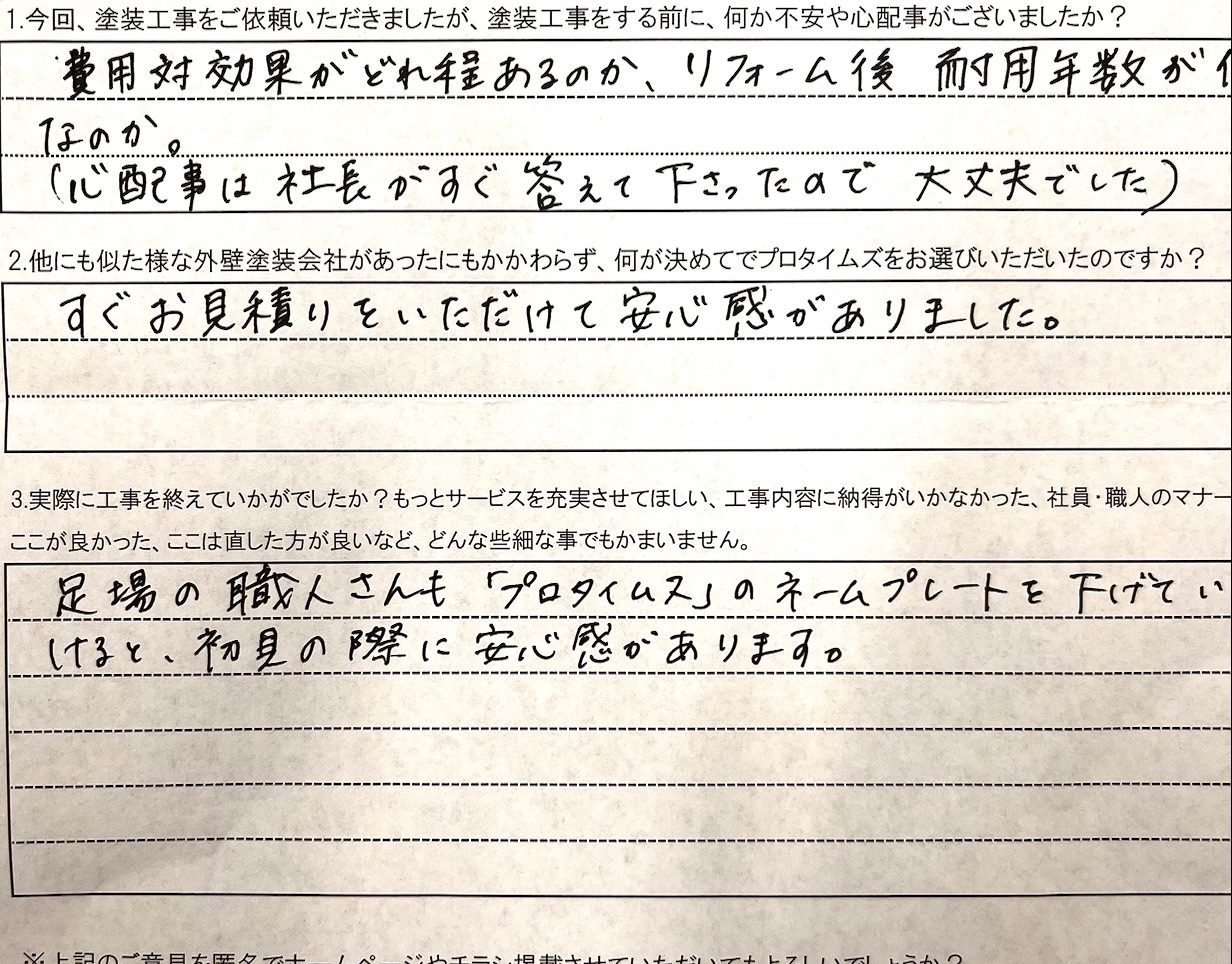 1.今回、塗装工事をご依頼いただきましたが、塗装工事をする前に、何か不安や心配事がございましたか？
費用対効果がどれ程あるのか、リフォーム後 耐用年数が
なのか。
(心配事は 社長がすぐ 答えて 下さったので 大丈夫でした)
2.他にも似た様な外壁塗装会社があったにもかかわらず、何が決めてでプロタイムズをお選びいただいたのですか？
すぐお見積りをいただけて 安心感がありました。
3.実際に工事を終えていかがでしたか？もっとサービスを充実させてほしい、工事内容に納得がいかなかった、社員・職人のマナー
ここが良かった、ここは直した方が良いなど、どんな些細な事でもかまいません。
足場の職人さんも「プロタイムス」のネームプレートを下げてい
けると、初見の際に安心感があります。
※上記のご意見を匿名でホームページやチラシ掲載させていただいてもよろしいでしょうか？